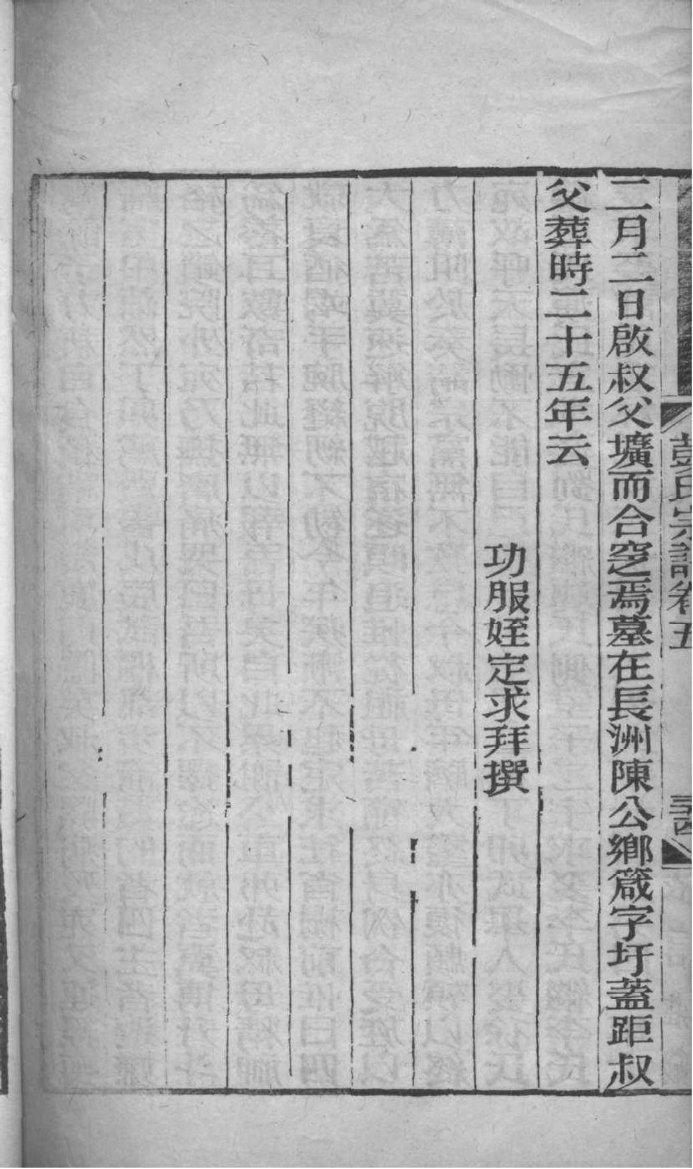 二月二日啟叔父壙而合窆焉墓在長洲陳公鄉箴字圩蓋距叔
父葬時二十五年云
功服姪定求拜撰
彭氏宗譜卷五